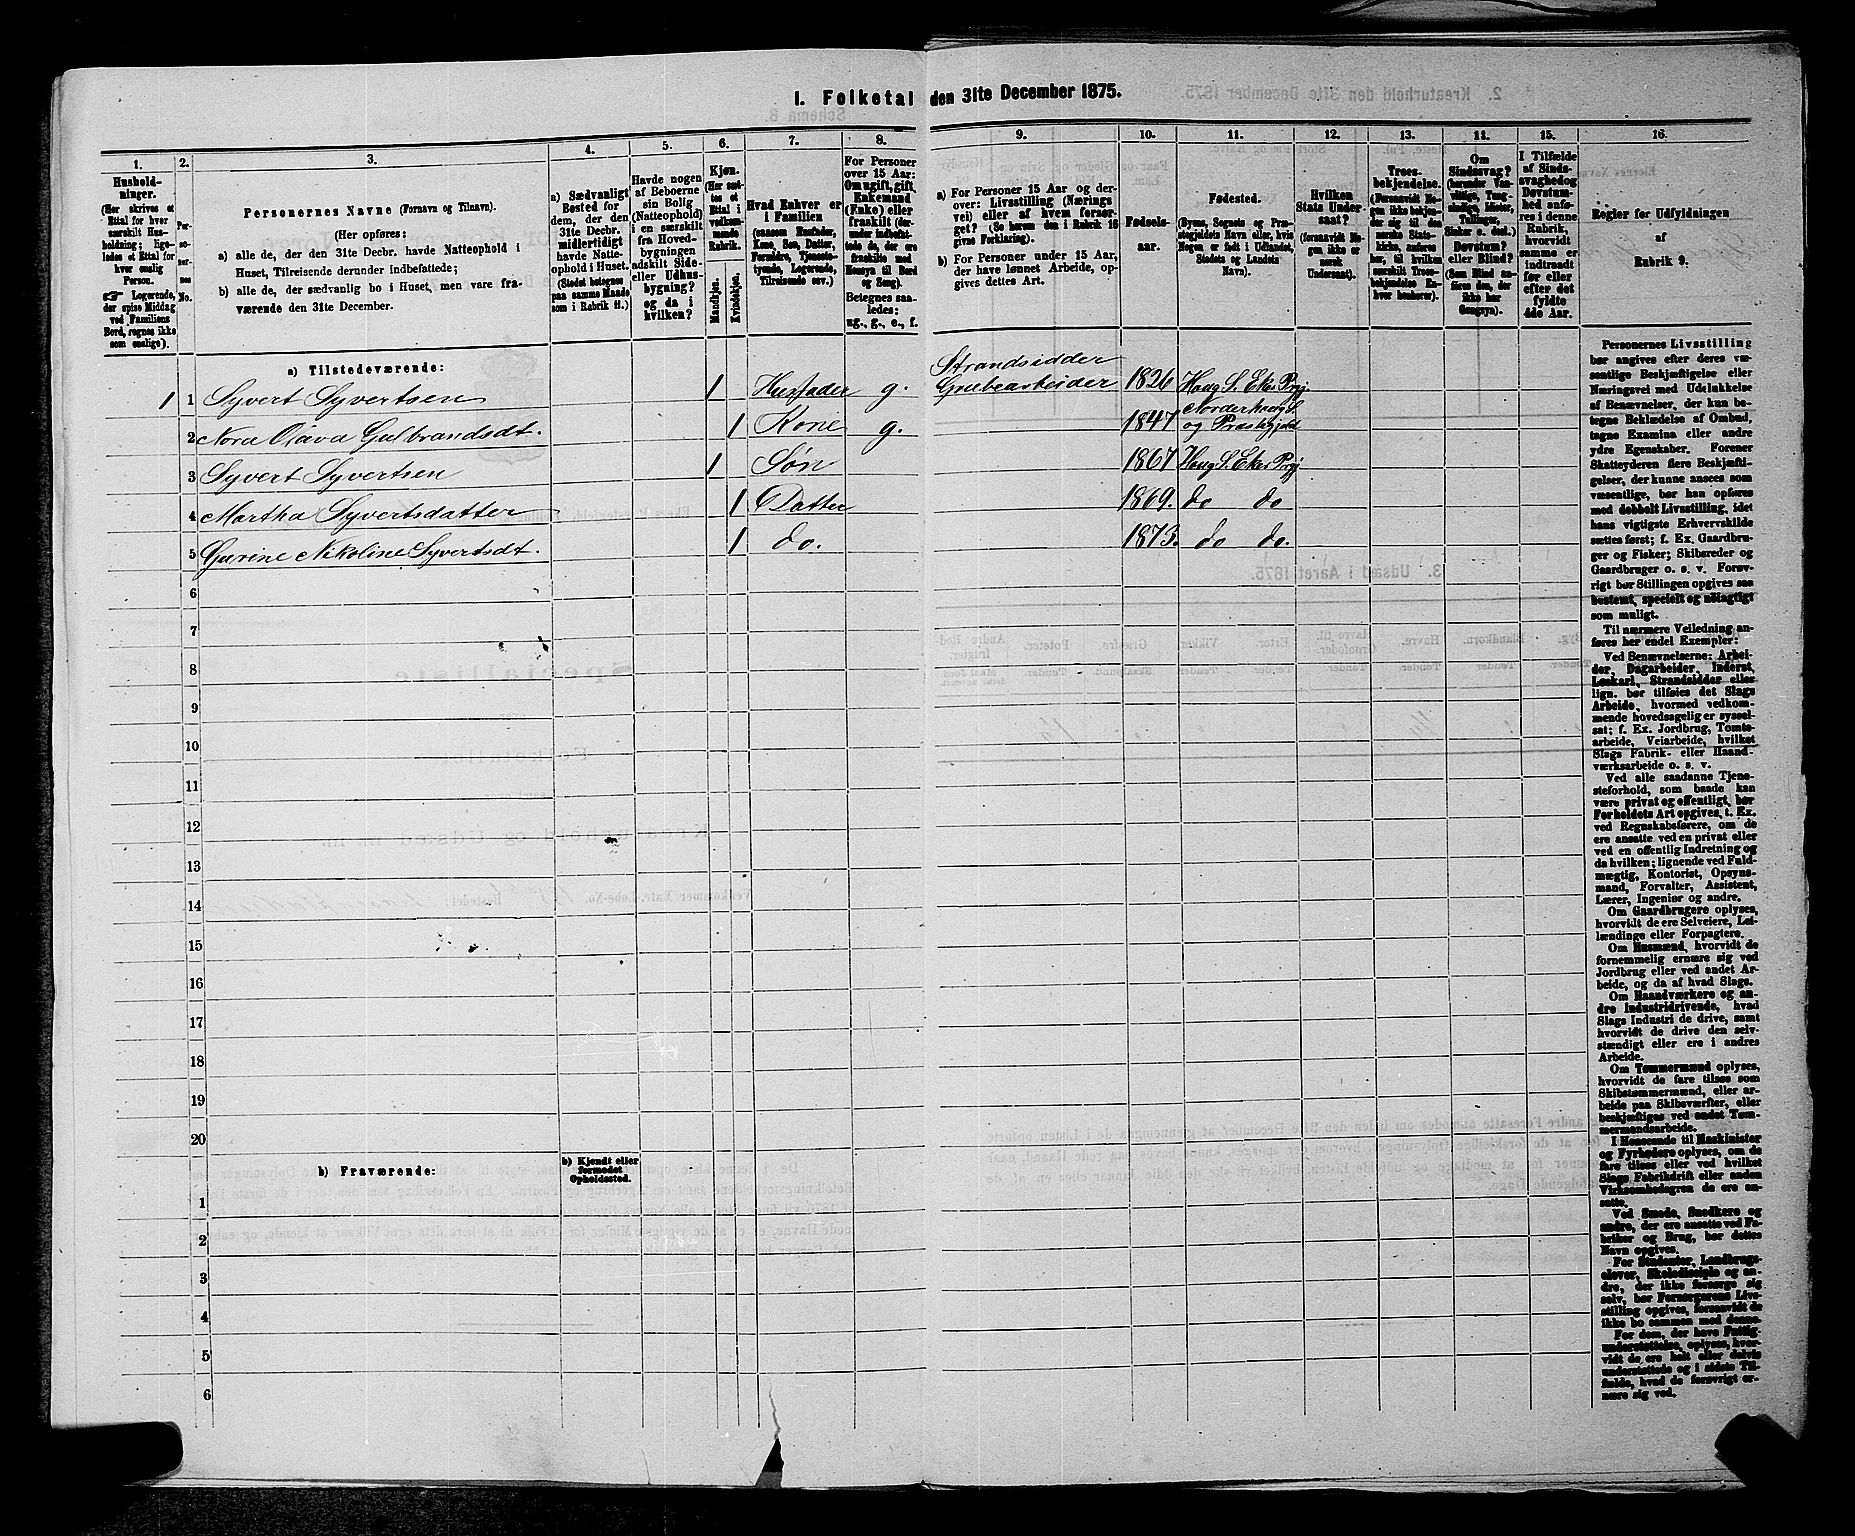 I. Folketal den 31te December 1875.
1.
2.
3.
4.
5.
6.
7.
8.
9.
10.
11.
12.
13.
14.
15.
16.
Hushold-
ninger.
(Her skrives et
Ettal for hver
særskilt Hus-
holdning; lige-
ledes et Ettal for
hver enslig
Person.
☞ Logerende,
der spise Middag
ved Familiens
Bord, regnes ikke
som enslige).
Per-
so-
ner-
nes
No.
Personernes Navne (Fornavn og Tilnavn).
(Her opføres:
a) alle de, der den 31te Decbr. havde Natteophold i
Huset, Tilreisende derunder indbefattede;
b) alle de, der sædvanlig bo i Huset, men vare fra-
værende den 31te December.
a) Sædvanligt
Bosted for
dem, der den
31te Decbr.
midlertidigt
havde Natte-
ophold i Huset.
(Stedet betegnes
paa samme Maade
som i Rubrik 11.)
Havde nogen
af Beboerne
sin Bolig
(Natteophold)
i en særskilt
fra Hoved-
bygningen
adskilt Side-
eller Udhus-
bygning?
og da i
hvilken?
Kjøn.
(Her sæt-
tes et
Ettal i
vedkom-
mende
Rubrik.
Mandkjøn.
Kvindekjøn.
Hvad Enhver er
i Familien
(saasom Husfader,
Kone, Søn, Datter,
Forældre, Tjeneste-
tyende, Logerende,
Tilreisende osv.)
For Personer
over 15 Aar:
Om ugift, gift,
Enkemand
(Enke) eller
fraskilt (der-
under indbefat-
tede de, der ere
fraskilte med
Hensyn til Bord
og Seng).
Betegnes saa-
ledes:
ug., g., e., f.
a) For Personer 15 Aar og der-
over: Livsstilling (Nærings
vei) eller af hvem forsør-
get? (Se herom den i Rubrik 16
givne Forklaring).
b) For Personer under 15 Aar,
der have lønnet Arbeide, op-
gives dettes Art.
Fødsels-
aar.
Fødested.
(Byens, Sognets og Præ-
stegjeldets Navn eller, hvis
Nogen er født i Udlandet,
Stedets og Landets
Navn).
Hvilken
Stats Under-
saat?
(forsaavidt No-
gen ikke er
norsk
Undersaat).
Troes-
bekjendelse.
(Forsaavidt No-
gen ikke bekjen-
der sig til den
norske Stats-
kirke, anføres
her, til hvilken
særskilt Troes-
bekjendelse En-
hver henhører).
Om
Sindssvag?
(herunder Van-
vittige, Tung-
sindige, Idioter,
Tullinger,
Sinker o. desl.)
Døvstum?
eller Blind?
(Som Blind an-
føres den, der
ikke har
Gangsyn).
I Tilfælde
af Sinds-
svaghed og
Døvstum-
hed anfø-
res i denne
Rubrik,
hvorvidt
samme er
indtraadt
før eller
efter det
fyldte
4de Aar.
Regler for Udfyldningen
af
Rubrik 9.
a) Tilstedeværende:
1 1 Syvert Syvertsen 1 Husfader g. Strandsidder
Grubearbeider 1826 Houg S. Eker Prgj.
2 Nora Olava Gulbrandsdt. 1 Kone g. 1847 Norderhoug S.
og Præstegjeld
3 Syvert Syvertsen 1 Søn 1867 Houg S. Eker Prgj.
4 Martha Syvertsdatter 1 Datter 1869. do do
5 Gurine Nikoline Syvertsdt. 1 do. 1873. do do.
6
7
8
9
10
11
12
13
14
15
16
17
18
19
20
b) Fraværende:
b) Kjendt eller
formodet
Opholdssted.
1
2
3
4
5
6
Personernes Livsstilling
bør angives efter deres væ-
sentlige Beskjæftigelse eller
Næringsvei med Udelukkelse
af Benævnelser, der kun be-
tegne Beklædelse af Ombud,
tagne Examina eller andre
ydre Egenskaber. Forener
Skatteyderen flere Beskjæfti-
gelser, der kunne ansees som
væsentlige, bør han opføres
med dobbelt Livsstilling, idet
hans vigtigste Erhvervskilde
sættes først; f. Ex. Gaardbru-
ger og Fisker; Skibsreder og
Gaardbruger o. s. v. Forøv-
rigt bør Stillingen opgives saa
bestemt, specielt og nöiagtigt
som muligt.
Til nærmere Veiledning an-
føres her endel Exempler:
Ved Benævnelserne: Arbei-
der, Dagarbeider, Inderst,
Løskarl, Strandsidder eller
lign. bør tilføies det Slags
Arbeide, hvormed vedkom-
mende hovedsagelig er syssel-
sat; f. Ex. Jordbrug, Tomte-
arbeide, Veiarbeide, hvilket
Slags Fabrik- eller Haand-
værksarbeide o. s. v.
Ved alle saadanne Tjene-
steforhold, som baade kan
være privat og offentligt, bør
Forholdets Art opgives, t. Ex.
ved Regnskabsførere, om de
ere ansatte ved en privat eller
ved en offentlig Indretning og
da hvilken; lignende ved Fuld-
mægtig, Kontorist, Opsyns-
mand, Forvalter, Assistent,
Lærer, Ingeniør og andre.
Om Gaardbrugere oplyses,
hvorvidt de ere Selveiere, Lei-
lændinge eller Forpagtere.
Om Husmænd, hvorvidt de
fornemmelig ernære sig ved
Jordbrug eller ved andet Ar-
beide, og da af hvad Slags.
Om Haandværkere og an-
dre Industridrivende, hvad
Slags Industri de drive, samt
hvorvidt de drive den selv-
stændigt eller ere i andres
Arbeide.
Om Tømmermænd oplyses,
hvorvidt de fare tilsøs som
Skibstømmermænd, eller ar-
beide paa Skibsværfter, eller
beskjæftiges ved andet Tøm-
mermandsarbeide.
I Henseende til Maskinister
og Fyrbødere oplyses, om de
fare tilsøs eller ved hvilket
Slags Fabrikdrift eller anden
Virksomhedsgren de ere an-
satte.
Ved Smede, Snedkere og
andre, der ere ansatte ved Fa-
briker og Brug, bør dettes
Navn opgives.
For Studenter, Landbrugs-
elever, Skoledisciple og an-
dre, der ikke forsørge sig
selv, bør Forsørgerens Livs-
stilling opgives, forsaavidt de
ikke bo sammen med denne.
For dem, der have Fattig-
understøttelse, oplyses, hvor-
vidt de ere helt eller delvis
understøttede og i sidste Til-
fælde, hvad de forøvrigt er-
nære sig ved.